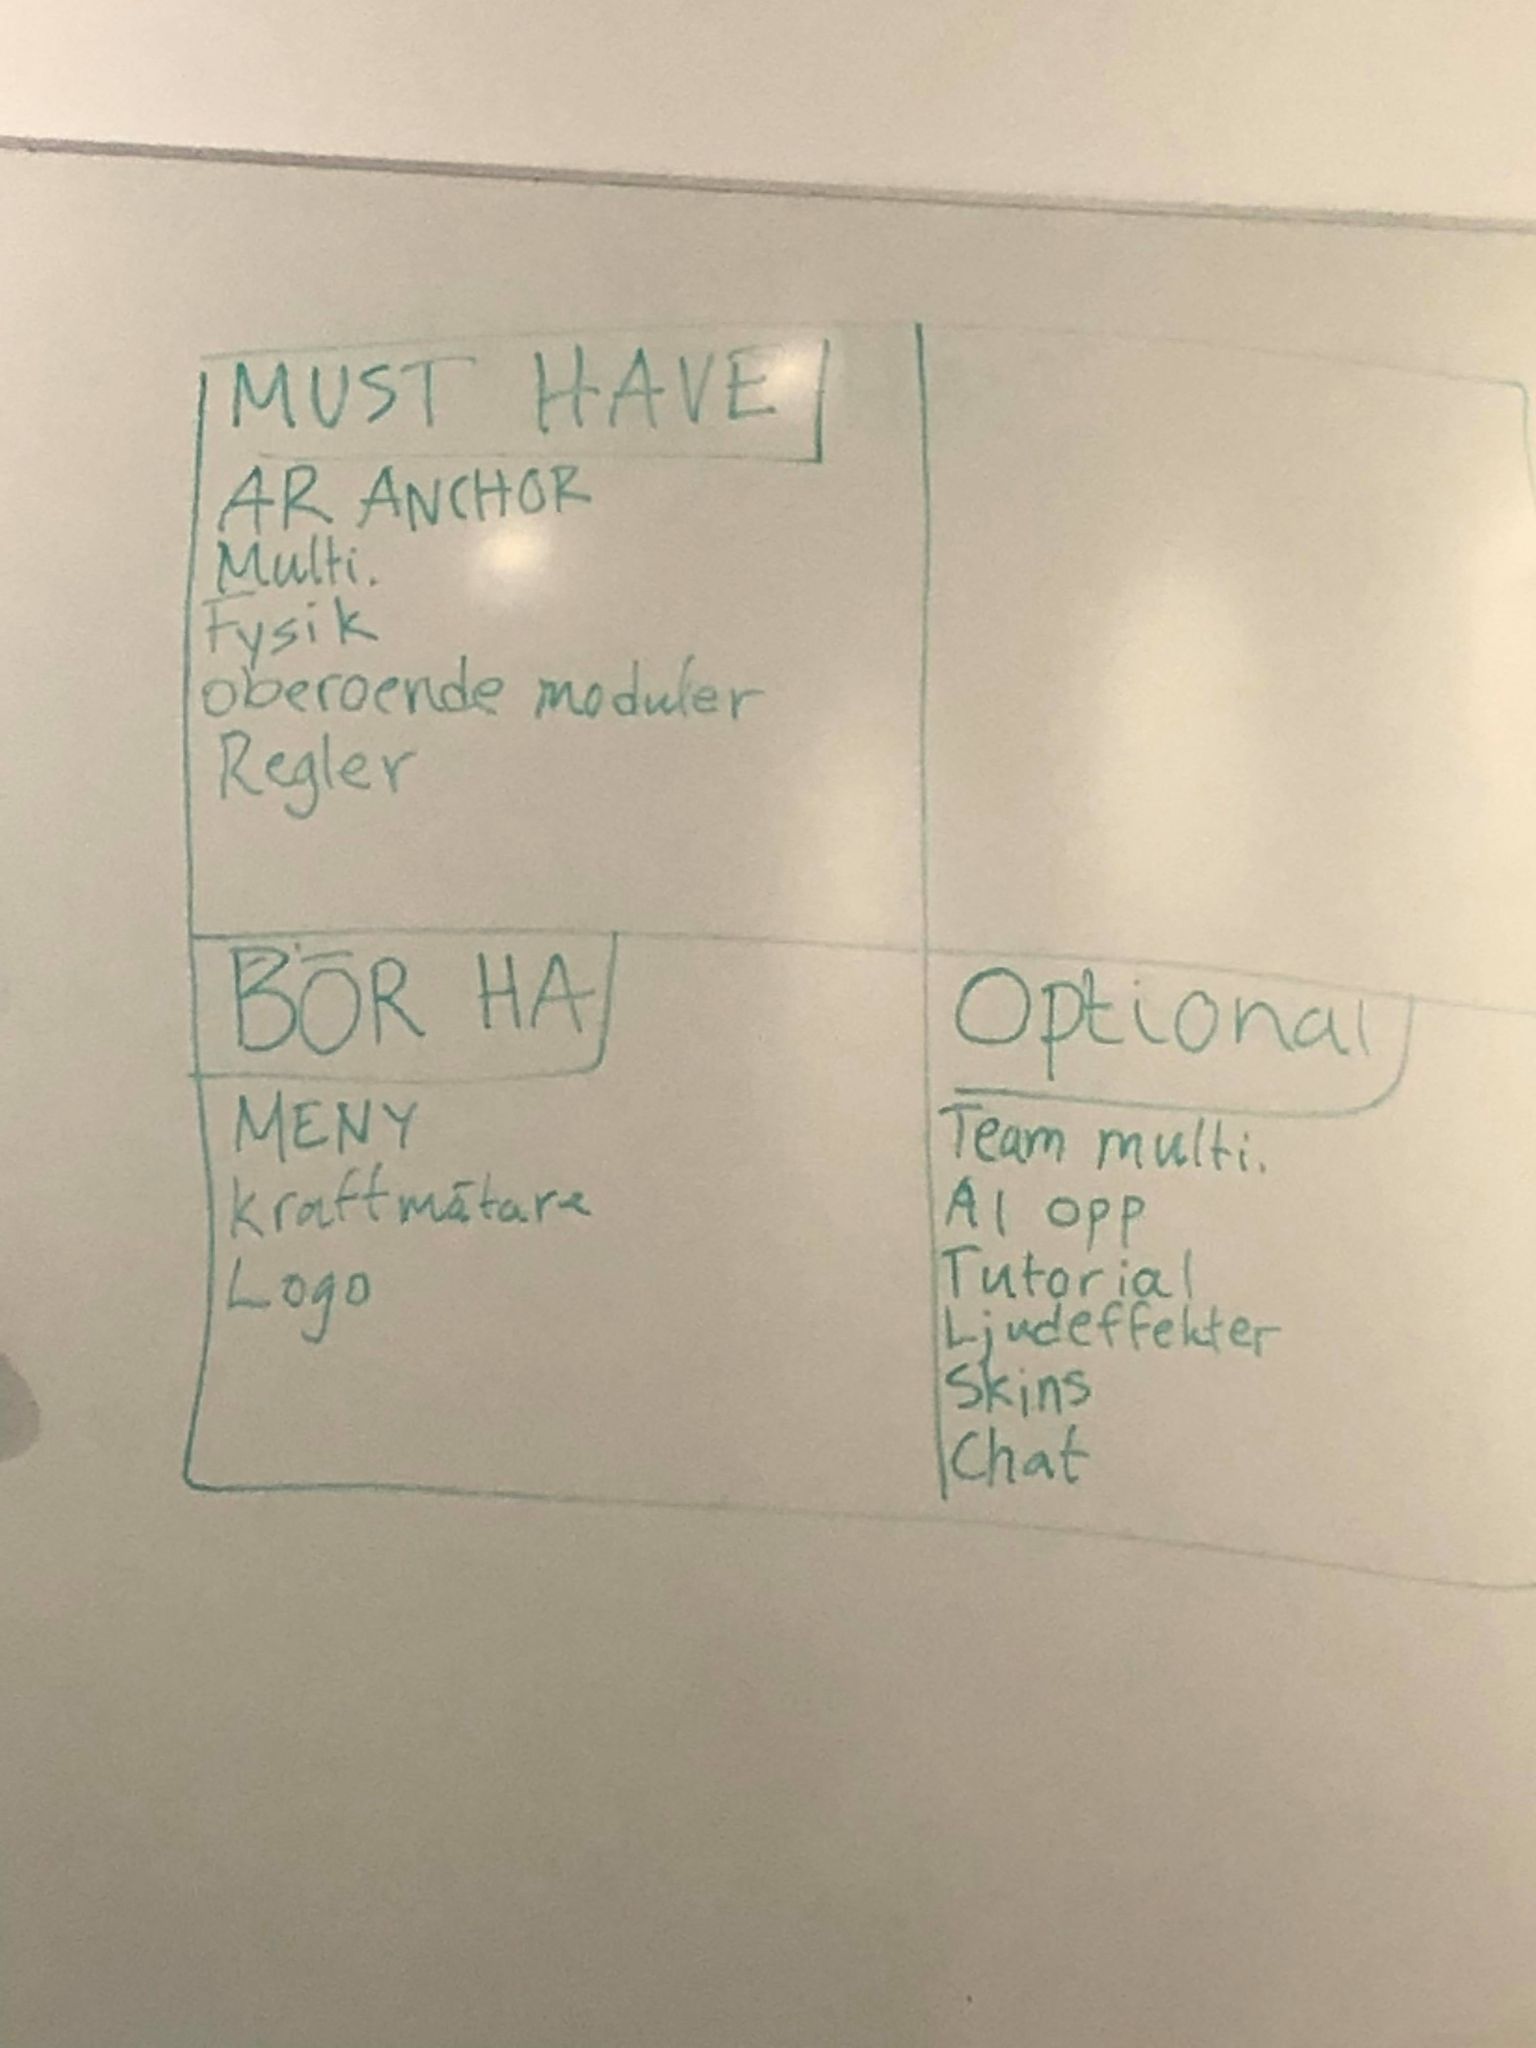 MUST HAVE
AR ANCHOR
Multi.
Fysik
oberoende moduler
Regler
BÖR HA
MENY
kraftmätare
Logo
Optional
Team multi.
AI opp
Tutorial
Ljudeffekter
Skins
Chat